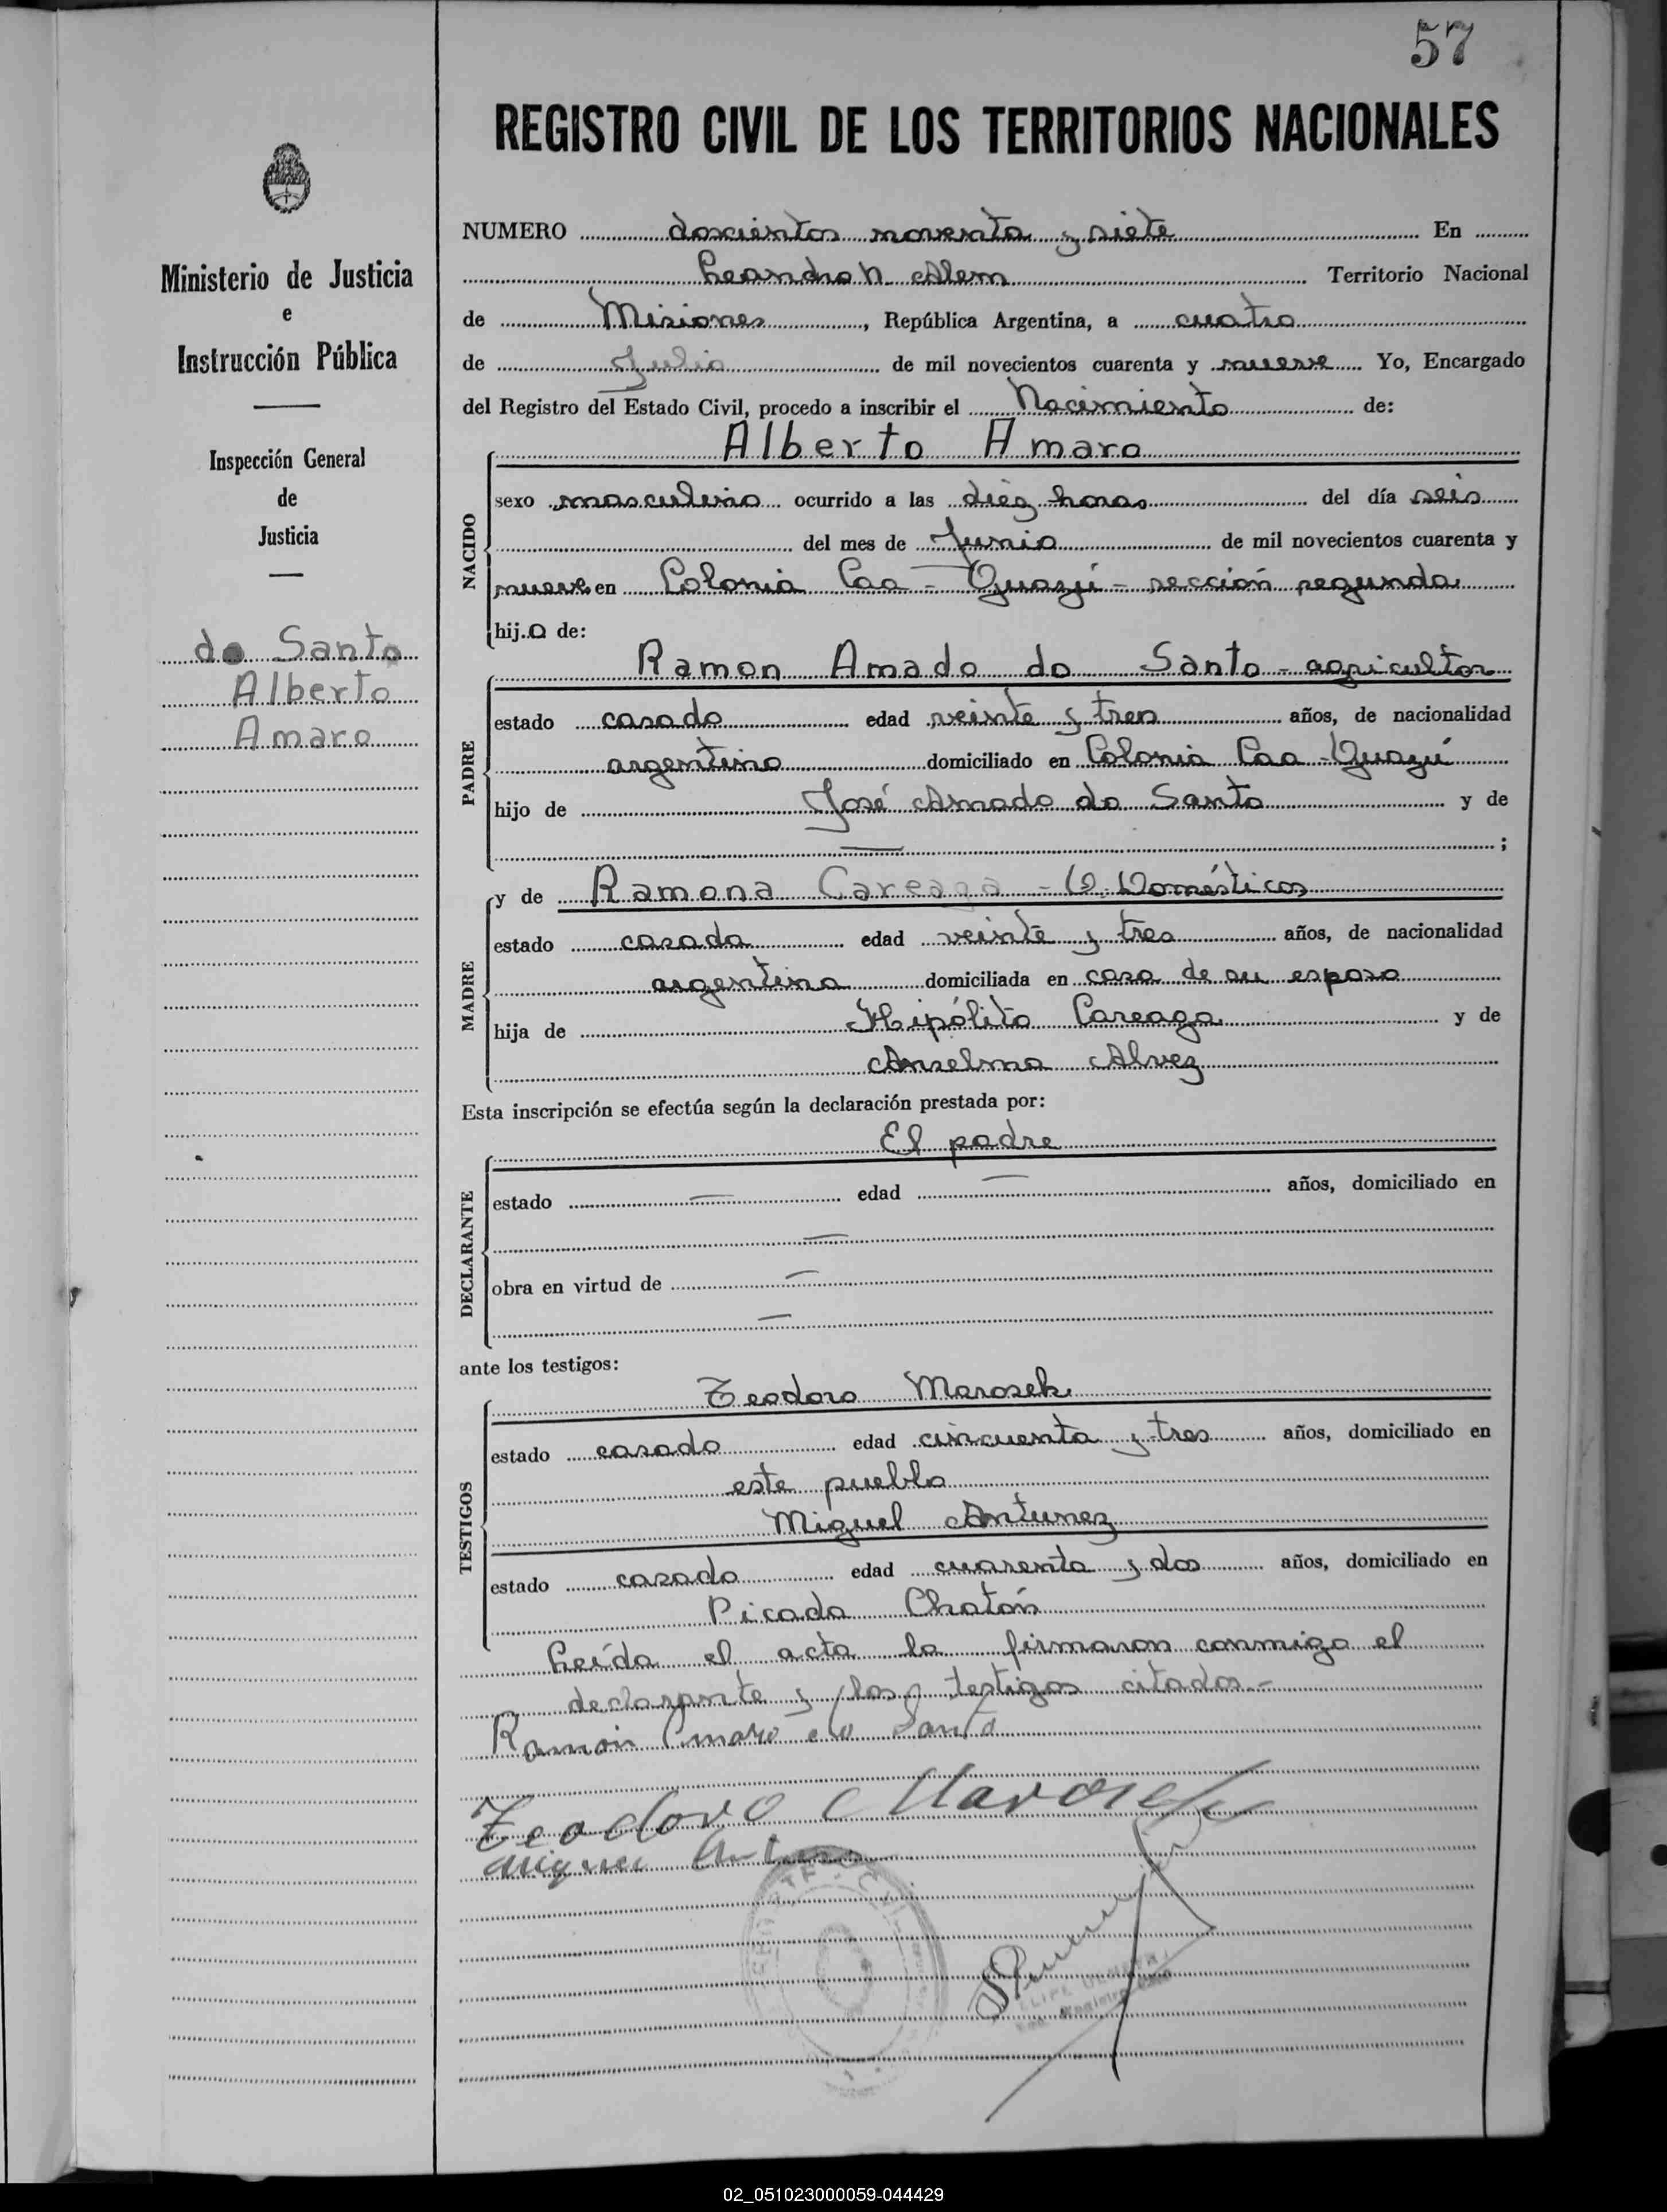 57
REGISTRO CIVIL DE LOS TERRITORIOS NACIONALES
Ministerio de Justicia
e
Instrucción Pública
Inspección General
de
Justicia
do Santo
Alberto
Amaro
NUMERO doscientos noventa y siete En
Leandro N. Alem Territorio Nacional
de Misiones, República Argentina, a cuatro
de Julio de mil novecientos cuarenta y nueve Yo, Encargado
del Registro del Estado Civil, procedo a inscribir el Nacimiento de:
NACIDO
Alberto Amaro
sexo masculino ocurrido a las diez horas del día seis
del mes de Junio de mil novecientos cuarenta y
nueve en Colonia Caa-Guazú-sección segunda
hijo de:
PADRE
Ramon Amado do Santo-agricultor
estado casado edad veinte y tres años, de nacionalidad
argentino domiciliado en Colonia Caa-Guazú
hijo de José Amado do Santo y de
— ;
MADRE
y de Ramona Careaga - Q. Domésticos
estado casada edad veinte y tres años, de nacionalidad
argentina domiciliada en casa de su esposo
hija de Hipólito Careaga y de
Anselma Alvez
Esta inscripción se efectúa según la declaración prestada por:
DECLARANTE
El padre
estado — edad — años, domiciliado en
—
obra en virtud de —
—
ante los testigos:
TESTIGOS
Teodoro Marosek
estado casado edad cincuenta y tres años, domiciliado en
este pueblo
Miguel Antunez
estado casado edad cuarenta y dos años, domiciliado en
Picada Chatón
Leída el acta la firmaron conmigo el
declarante y los testigos citados.-
Ramon Amaro do Santo
Teodoro Marosek
Miguel
02_051023000059-044429